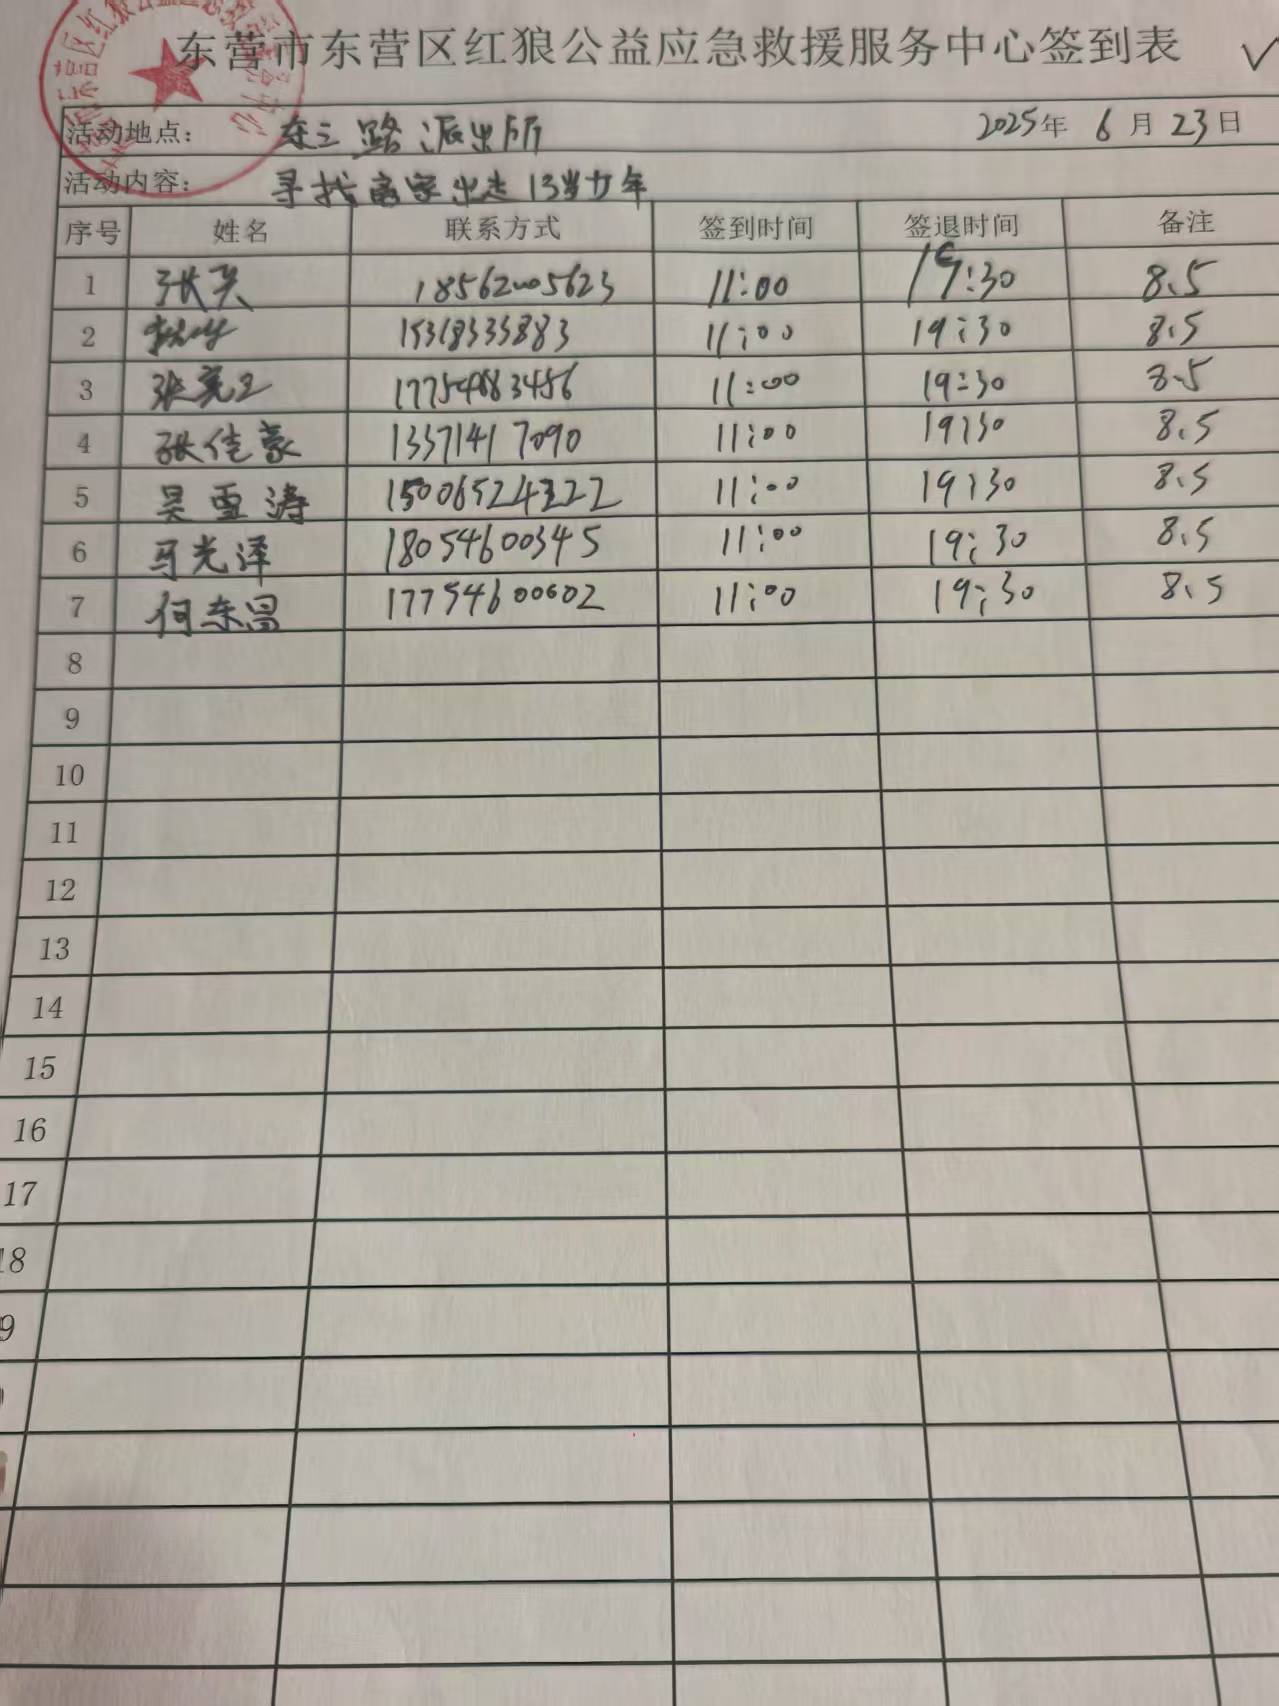 东营市东营区红狼公益应急救援服务中心签到表
活动地点: 东三路派出所 2025年 6月23日
活动内容: 寻找离家出走13岁少年
序号 姓名 联系方式 签到时间 签退时间 备注
1 11:00 19:30 8.5
2 15318333883 11:00 19:30 8.5
3 张亮卫 11:00 19:30 8.5
4 张佳豪 13371417090 11:00 19:30 8.5
5 吴雪涛 11:00 19:30 8.5
6 马光泽 18054600345 11:00 19:30 8.5
7 何东昌 17754600602 11:00 19:30 8.5
8
9
10
11
12
13
14
15
16
17
18
9